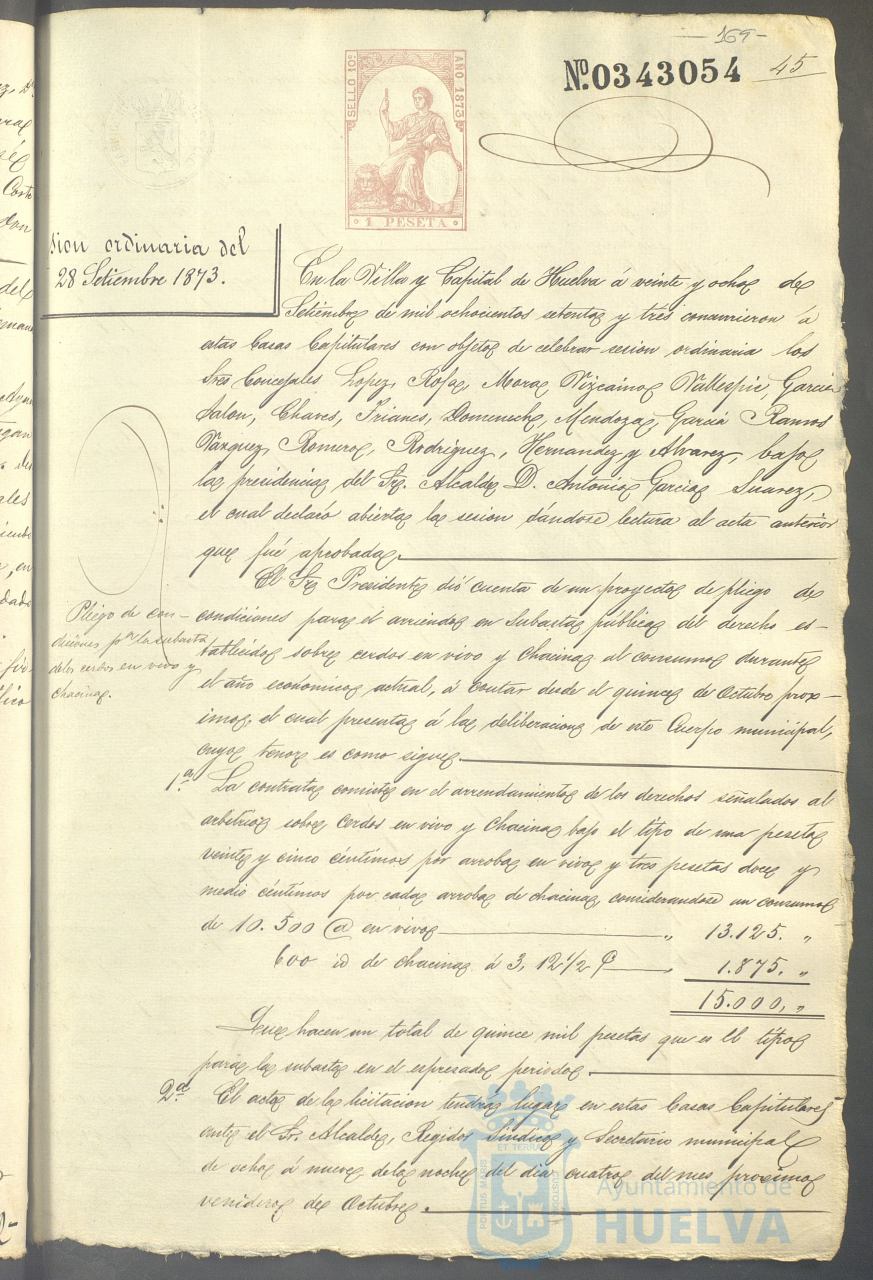 -169-
Nº.0343054
45
SELLO 10º
AÑO 1873
1 PESETA
sion ordinaria del
28 Setiembre 1873.
En la Villa y Capital de Huelva á veinte y ocho de
Setiembre de mil ochocientos setenta y tres concurrieron á
estas Casas Capitulares con objeto de celebrar sesion ordinaria los
Sres Concejales Lopez, Rofa, Mora, Vizcaino, Vallespic, Garcia
Jalon, Chaves, Frianes, Domenech, Mendoza, Garcia Ramos
Vazquez, Romero, Rodriguez, Hernandez y Alvarez, bajo
la presidencia del Sr. Alcalde D. Antonio Garcia Suarez,
el cual declaró abierta la sesion dándose lectura al acta anterior
que fué aprobada.
Pliego de con-
diciones pª la subasta
delos cerdos en vivo y
chacina.
El Sr Presidente dió cuenta de un proyecto de pliego de
condiciones para el arriendo en subasta pública del derecho es-
tablecido sobre cerdos en vivo y chacina al consumo durante
el año economico actual, á contar desde el quince de Octubre prox-
imo, el cual presenta á la deliberacion de este Cuerpo municipal,
cuyo tenor es como sigue.
1ª. La contrata consiste en el arrendamiento de los derechos señalados al
arbitrio sobre cerdos en vivo y chacina bajo el tipo de una peseta
veinte y cinco céntimos por arroba en vivo y tres pesetas doce y
medio céntimos por cada arroba de chacina, considerandose un consumo
de 10.500 @ en vivo „ 13.125. „
600 id de chacina á 3, 12 1/2 P „ 1.875. „
15.000, „
Que hacen un total de quince mil pesetas que es el tipo
para la subasta en el espresado periodo.
2ª. El acto de la licitacion tendrá lugar en estas Casas Capitulares
ante el Sr. Alcalde, Regidor Sindico y Secretario municipal
de ocho á nueve dela noche del dia cuatro del mes proximo
venidero de Octubre.
PORTUS MARIS
ET TERRAE
CUSTODIA
Ayuntamiento de
HUELVA